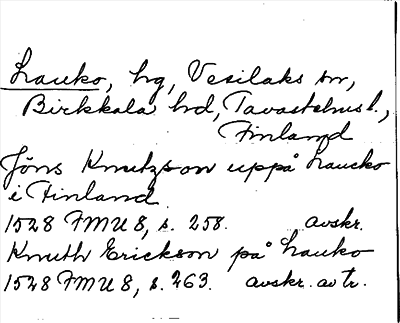 Lauko, hg, Vesilaks sn,
Birkkala hd, Tavastehus l.,
Finland
Jöns Knutzson uppå Laucko
i Finland
1528 FMU 8, s. 258. avskr.
Knuth Erickson på Lauko
1528 FMU 8, s. 263. avskr. av tr.